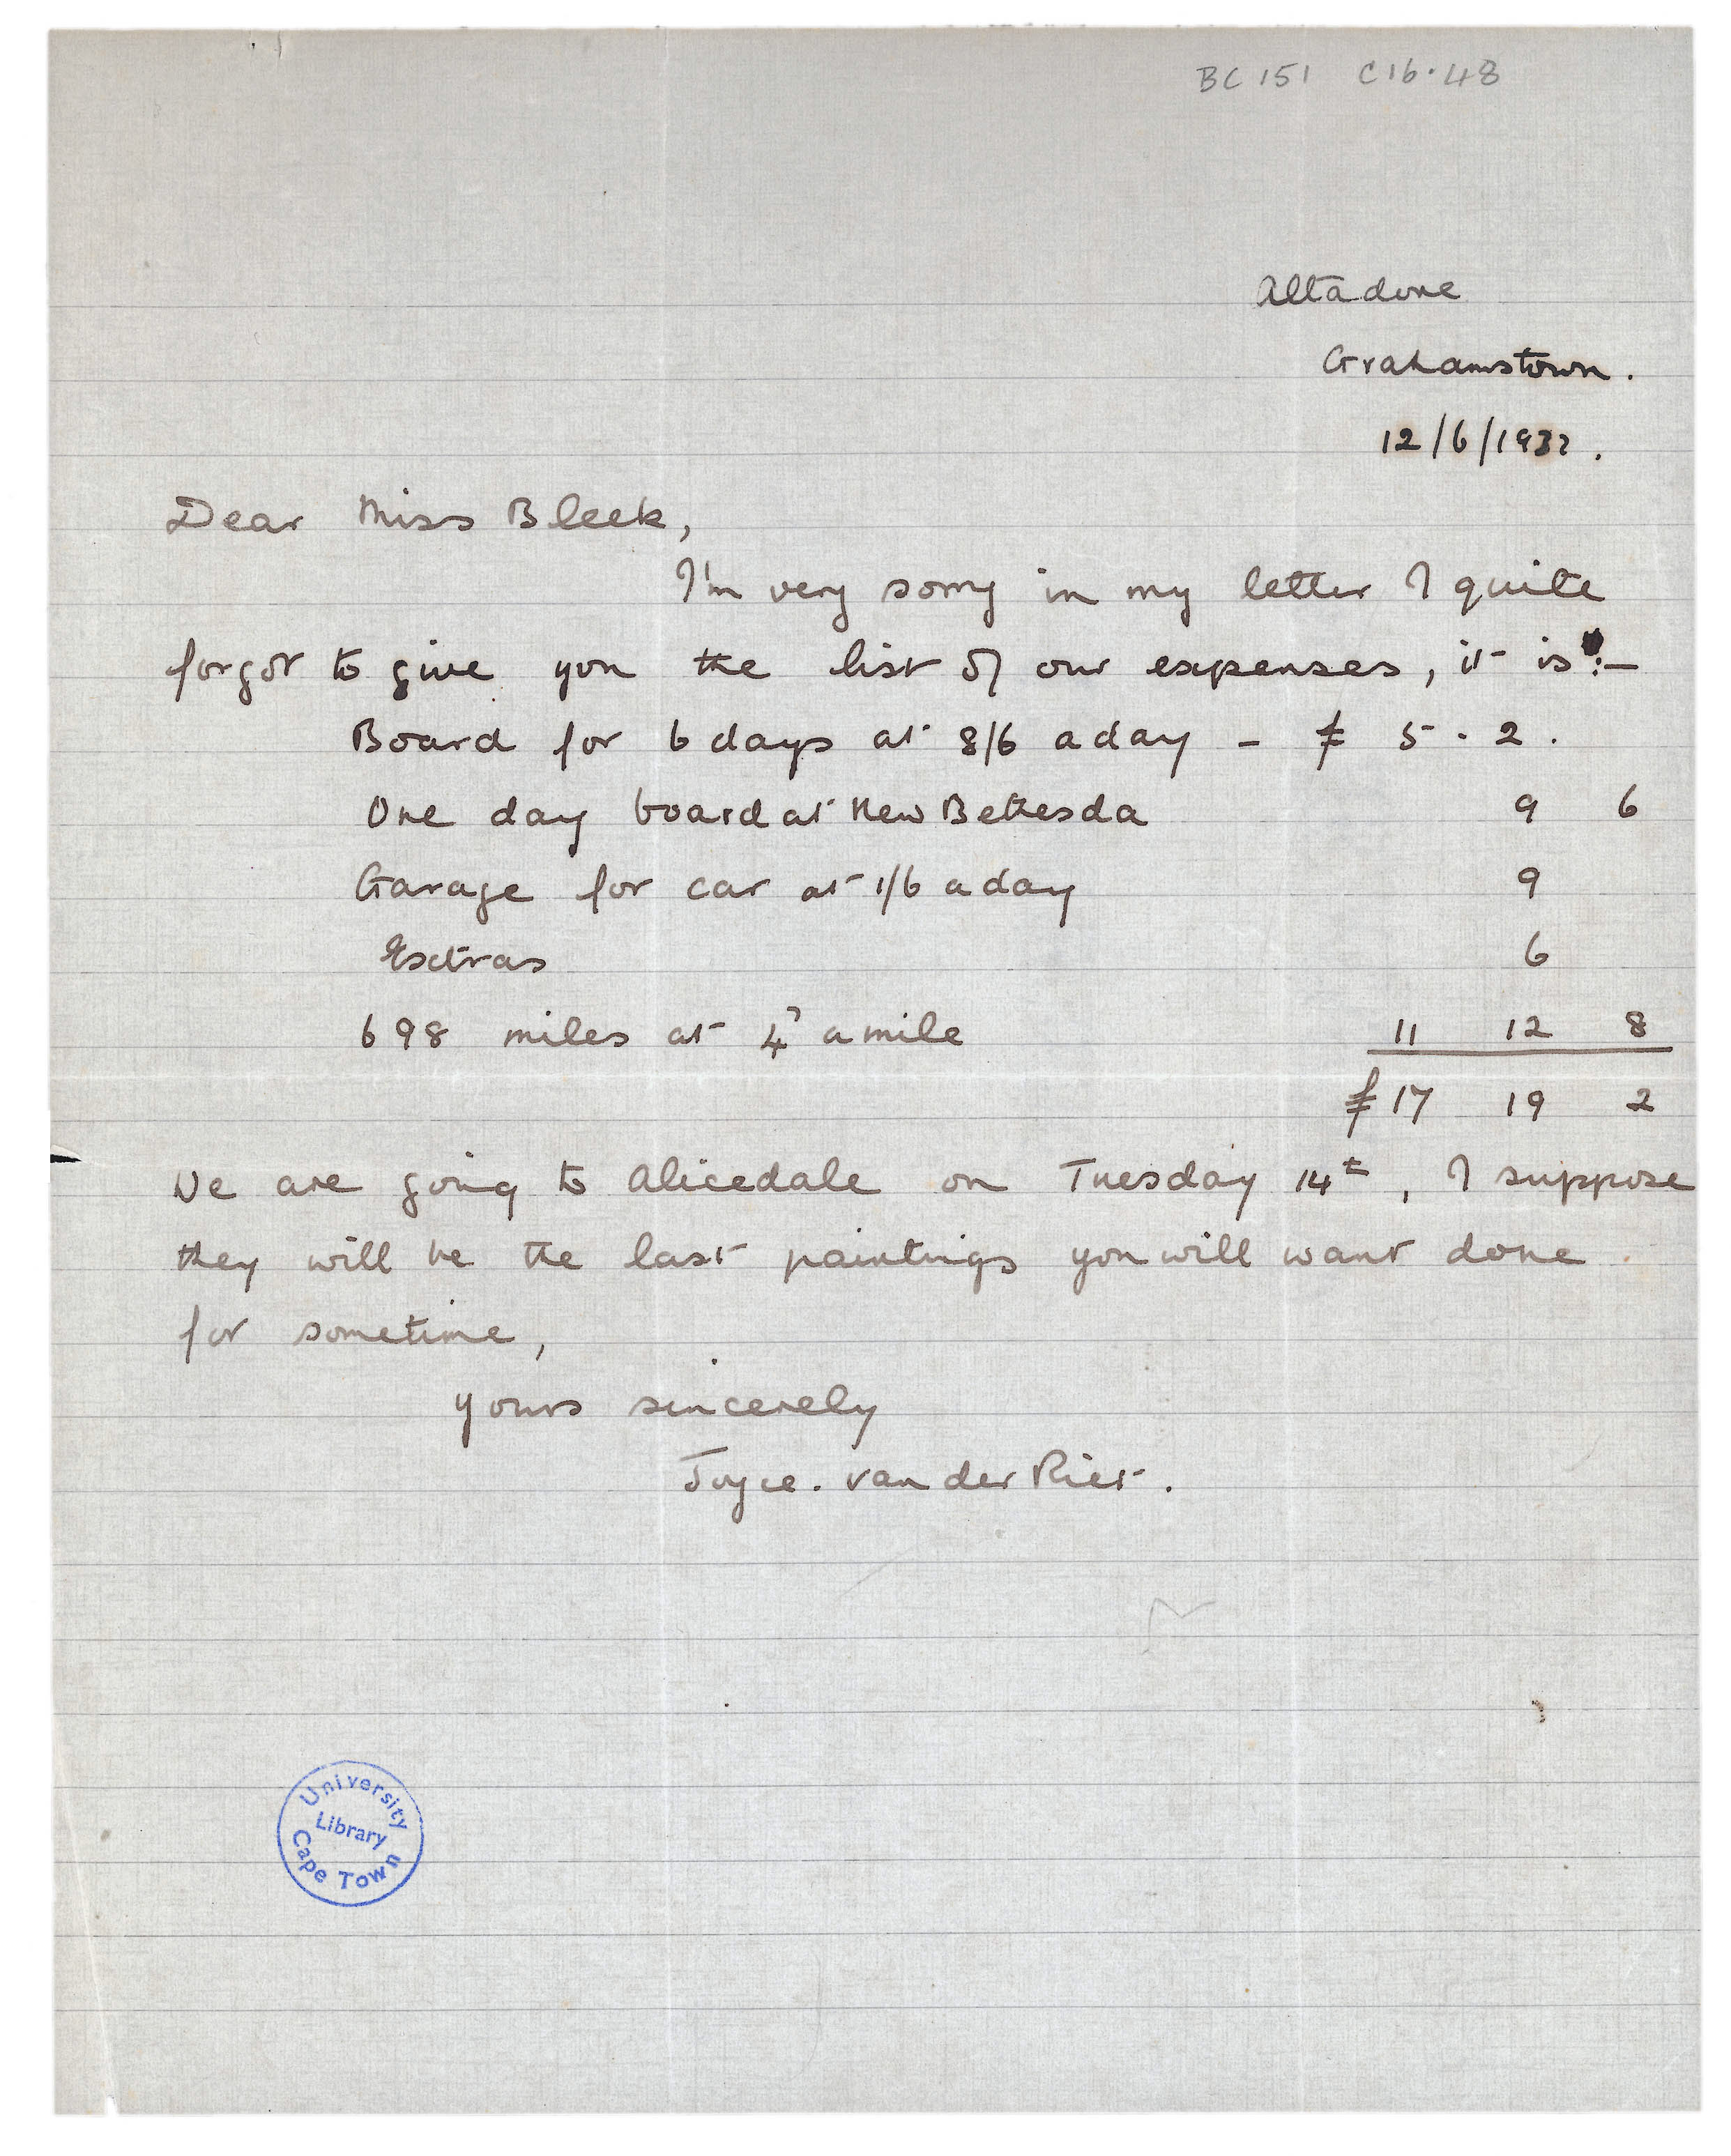 BC 151 C16.48
Altadore
Grahamstown.
12/6/1932.
Dear Miss Bleek,
I'm very sorry in my letter I quite
forgot to give you the list of our expenses, it is :-
Board for 6 days at 8/6 a day - £ 5 . 2 .
One day board at New Bethesda 9 6
Garage for car at 1/6 a day 9
Extras 6
698 miles at 4d a mile 11 12 8
£ 17 19 2
We are going to Alicedale on Tuesday 14th, I suppose
they will be the last paintings you will want done
for sometime,
yours sincerely
Joyce. van der Riet.
University
Library
Cape Town